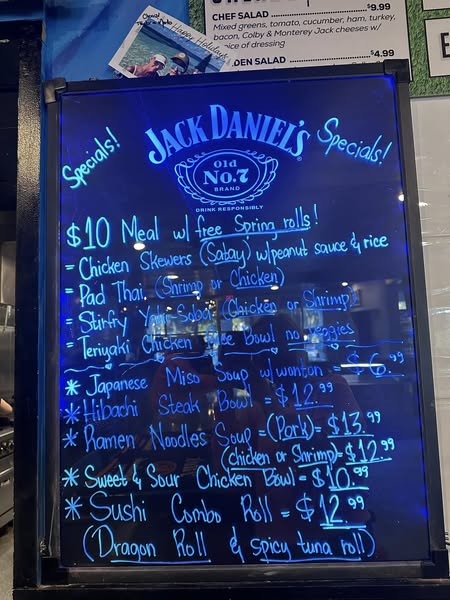 $9.99
CHEF SALAD
Mixed greens, tomato, cucumber, ham, turkey,
bacon, Colby & Monterey Jack cheeses w/
of dressing
DEN SALAD $4.99
Happy Holidays
Specials!
JACK DANIEL'S
Specials!
Old
No.7
BRAND
DRINK RESPONSIBLY
$10 Meal w/ free Spring rolls!
= Chicken Skewers (Satay) w/peanut sauce & rice
= Pad Thai (Shrimp or Chicken)
= Stirfry Soba (Chicken or Shrimp)
= Teriyaki Chicken Bowl no veggies
* Japanese Miso Soup w/ wonton = $6.99
* Hibachi Steak Bowl = $12.99
* Ramen Noodles Soup = (Pork) = $13.99
(chicken or Shrimp) = $12.99
* Sweet & Sour Chicken Bowl = $10.99
* Sushi Combo Roll = $12.99
(Dragon Roll & spicy tuna roll)